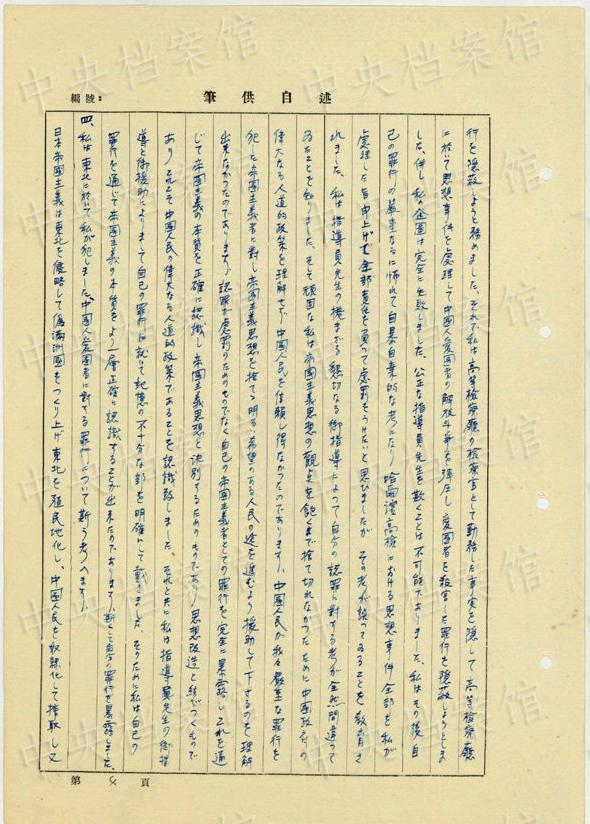 中央档案馆
編號：
筆供自述
行を隠蔽しようと務めました。それで私は高等檢察廳の檢察官として勤務した事実を隠して、高等檢察廳
に於いて思想事件を處理して中国人愛国者の解放斗争を彈圧し愛国者を殺害した罪行を隠蔽しようとしま
した。併し私の企図は完全に失敗しました。公正な指導員先生を欺くことは不可能でありました。私はその後自
己の罪行の嚴重なるに怖れて自暴自棄的な考になり哈尔濱高檢における思想事件全部を私が
處理した旨申上げて全部責任を負って處罰をうけたいと思いましたが、その考が誤ってゐることを教育さ
れました。私は指導員先生の撓まざる懇切なる御指導によって自分の認罪に対する考が全然間違って
ゐたことを知りました。そも頑固な私は帝国主義思想の観点を飽くまで捨て切れなかったために中国政府の
偉大なる人道的政策を理解せず、中国人民を信頼し得なかったのであります。中国人民が我々嚴重な罪行を
犯した帝国主義者に対し帝国主義思想を捨てゝ明るい希望のある人民の途を進むよう援助して下さるのを理解
出来なかったのであります。認罪が處罰のためのものでなく自己の帝国主義者としての罪行を完全に暴露し、これを通
じて帝国主義の本質を正確に認識し、帝国主義思想と決別するためのものであり、思想改造と結びつくもので
あり、これこそ中国人民の偉大なる人道的政策であることを認識致しました。それと共に私は指導員先生の御指
導と御援助によりまして自己の罪行に就いて記憶の不十分な部を明確にして戴きました。そのために私は自己の
罪行を通じて帝国主義の本質をより一層正確に認識することが出来たのであります。斯くして自分の罪行を暴露しました。
四、私は東北に於いて私が犯しました中国人愛国者に対する罪行について斯う考へます。
日本帝国主義は東北を侵略して偽満洲国をつくり上げ東北を殖民地化し、中国人民を奴隷化して搾取し又
第 頁